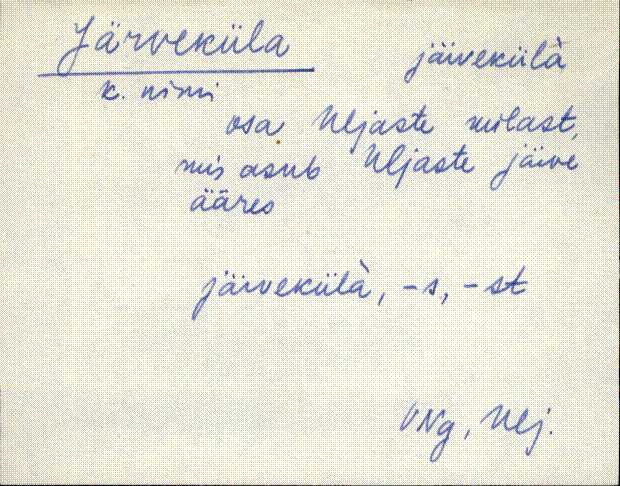 Järveküla
järvekülà
k. nimi
osa Uljaste külast,
mis asub Uljaste järve
ääres
järvekülà, -s, -st
VNg, Ulj.